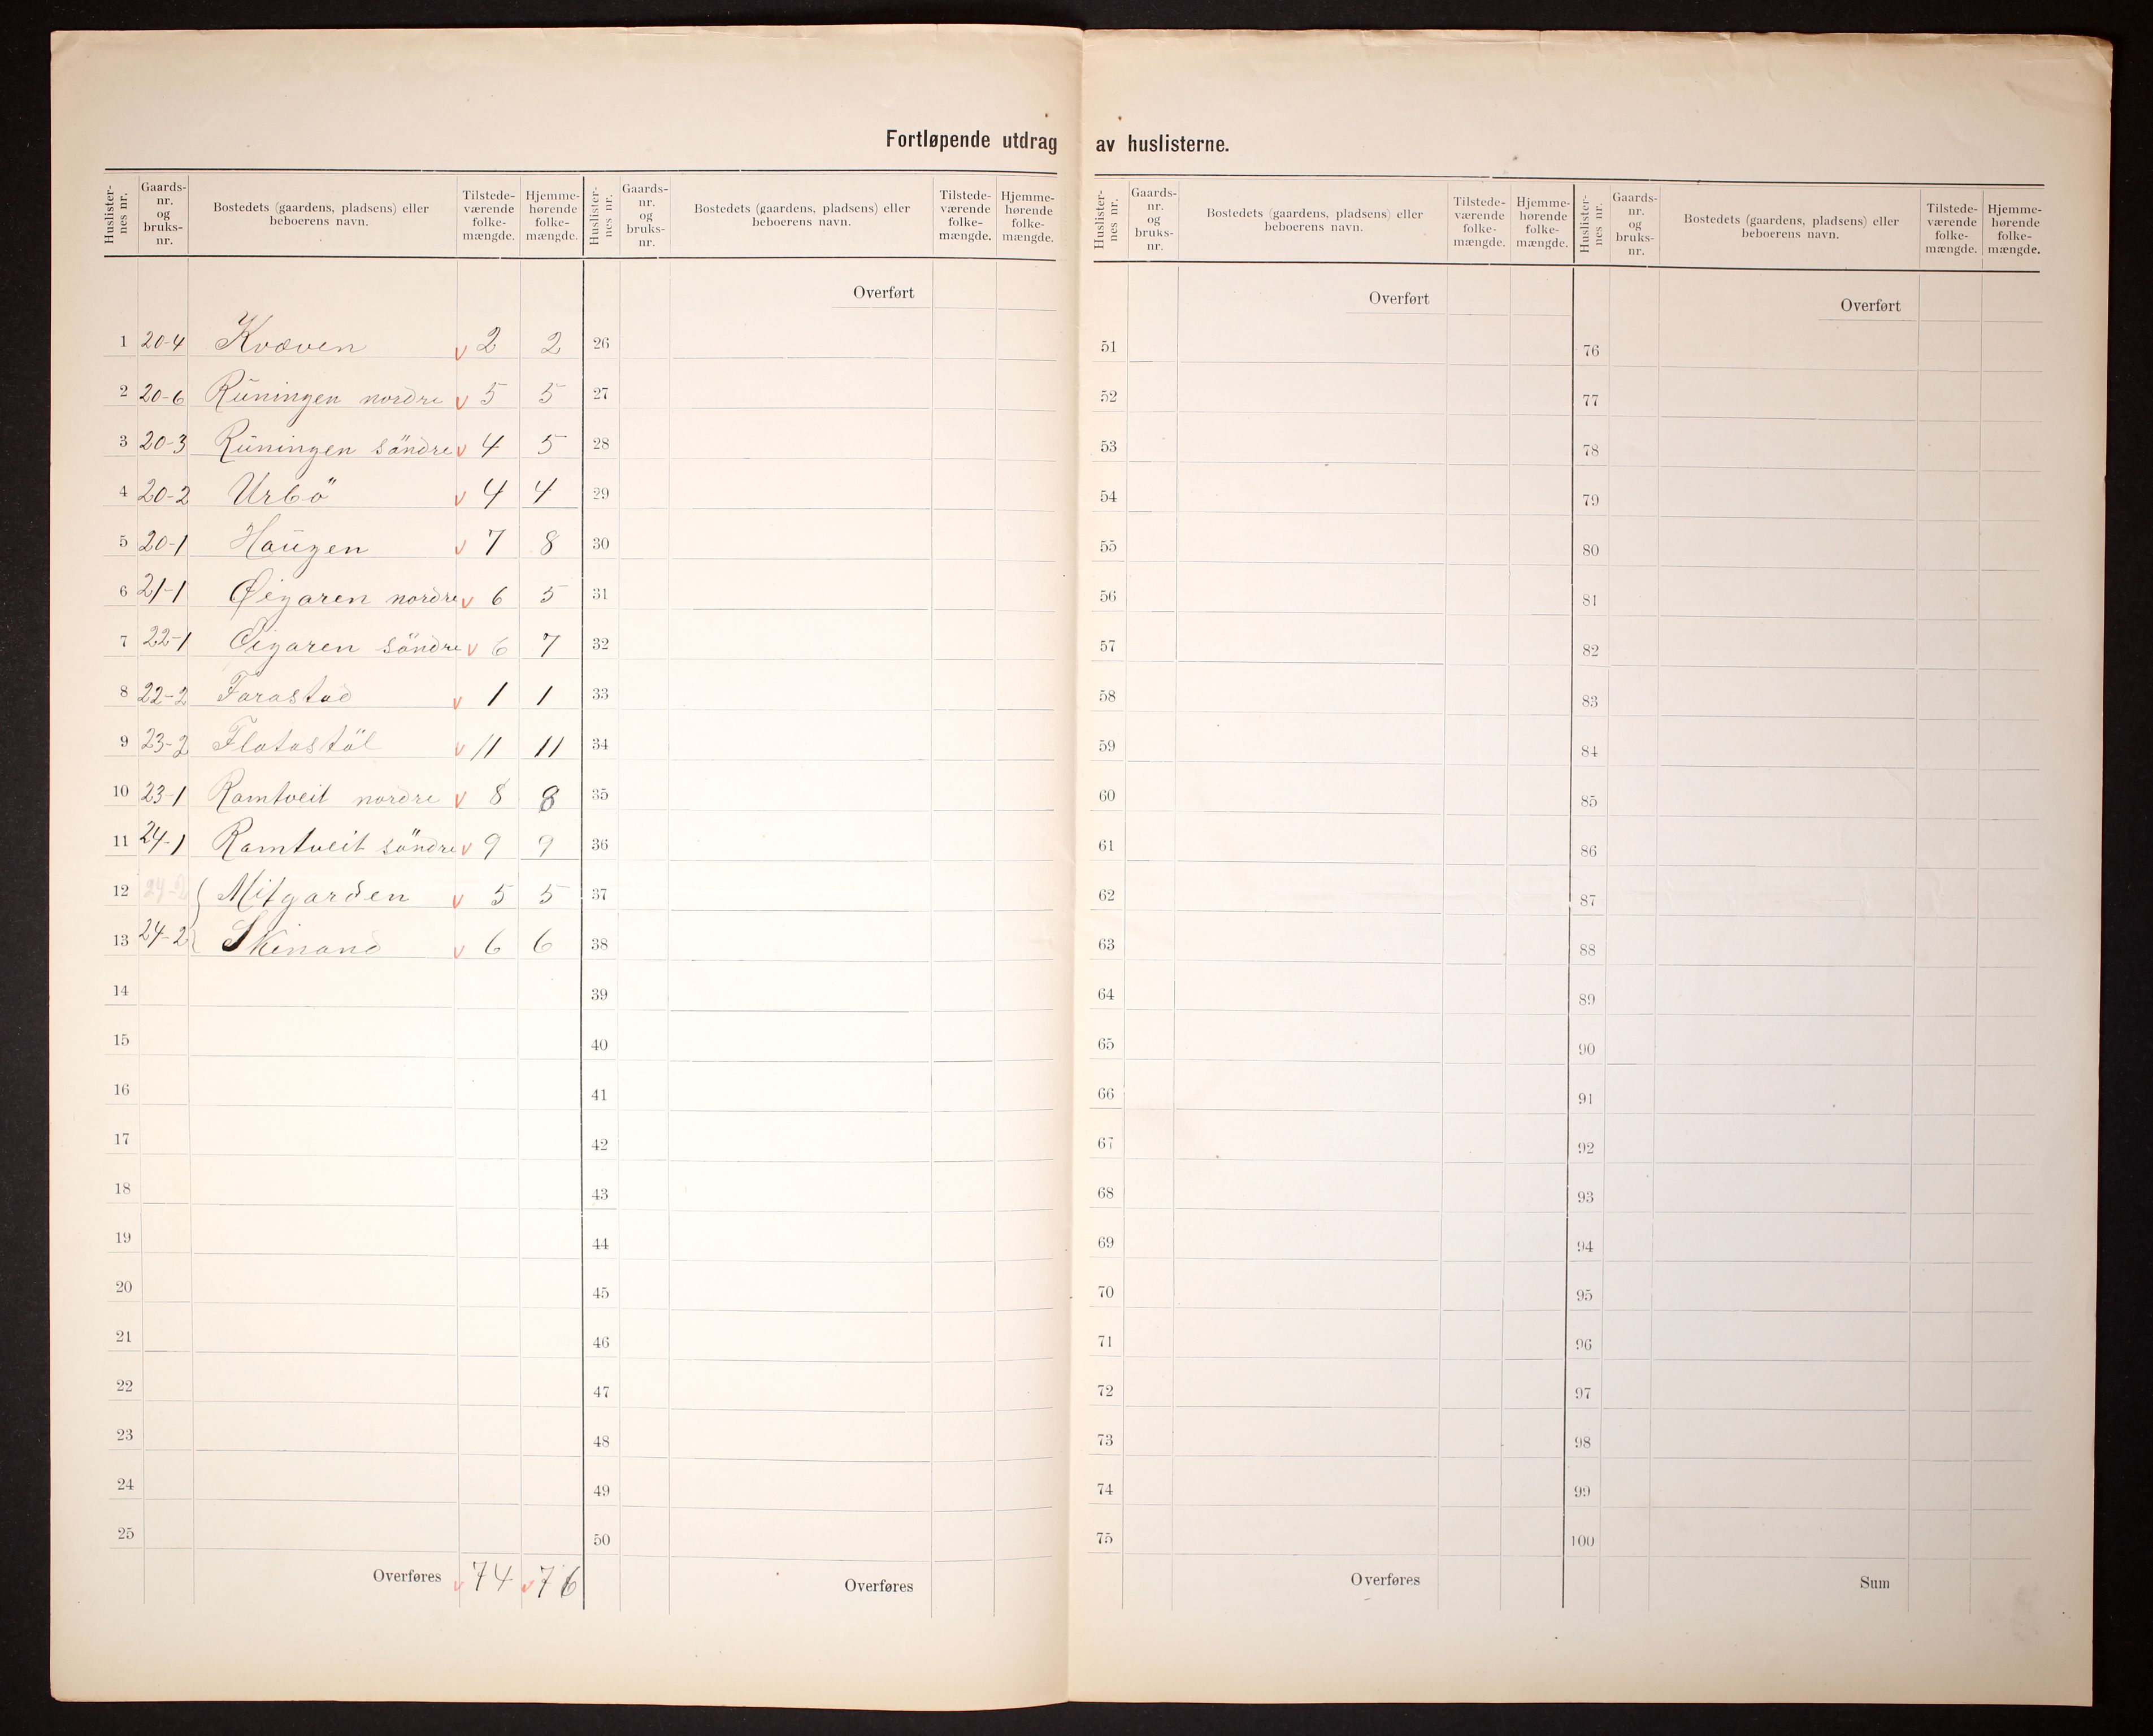 Fortløpende utdrag av huslisterne.
Huslister-nes nr. Gaards-nr. og bruks-nr. Bostedets (gaardens, pladsens) eller beboerens navn. Tilstede-værende folke-mængde. Hjemme-hørende folke-mængde.
1 20-4 Kvæven v 2 2
2 20-6 Rūningen nordre v 5 5
3 20-3 Rūningen söndre v 4 5
4 20-2 Urbö v 4 4
5 20-1 Haūgen v 7 8
6 21-1 Øigaren nordre v 6 5
7 22-1 Øigaren söndre v 6 7
8 22-2 Farastad v 1 1
9 23-2 Flatastöl v 11 11
10 23-1 Ramtveit nordre v 8 8
11 24-1 Ramtveit söndre v 9 9
12 24-2 Mitgarden v 5 5
13 24-2 Skinand v 6 6
14
15
16
17
18
19
20
21
22
23
24
25
Overføres v 74 v 76
Huslister-nes nr. Gaards-nr. og bruks-nr. Bostedets (gaardens, pladsens) eller beboerens navn. Tilstede-værende folke-mængde. Hjemme-hørende folke-mængde.
Overført
26
27
28
29
30
31
32
33
34
35
36
37
38
39
40
41
42
43
44
45
46
47
48
49
50
Overføres
Huslister-nes nr. Gaards-nr. og bruks-nr. Bostedets (gaardens, pladsens) eller beboerens navn. Tilstede-værende folke-mængde. Hjemme-hørende folke-mængde.
Overført
51
52
53
54
55
56
57
58
59
60
61
62
63
64
65
66
67
68
69
70
71
72
73
74
75
Overføres
Huslister-nes nr. Gaards-nr. og bruks-nr. Bostedets (gaardens, pladsens) eller beboerens navn. Tilstede-værende folke-mængde. Hjemme-hørende folke-mængde.
Overført
76
77
78
79
80
81
82
83
84
85
86
87
88
89
90
91
92
93
94
95
96
97
98
99
100
Sum